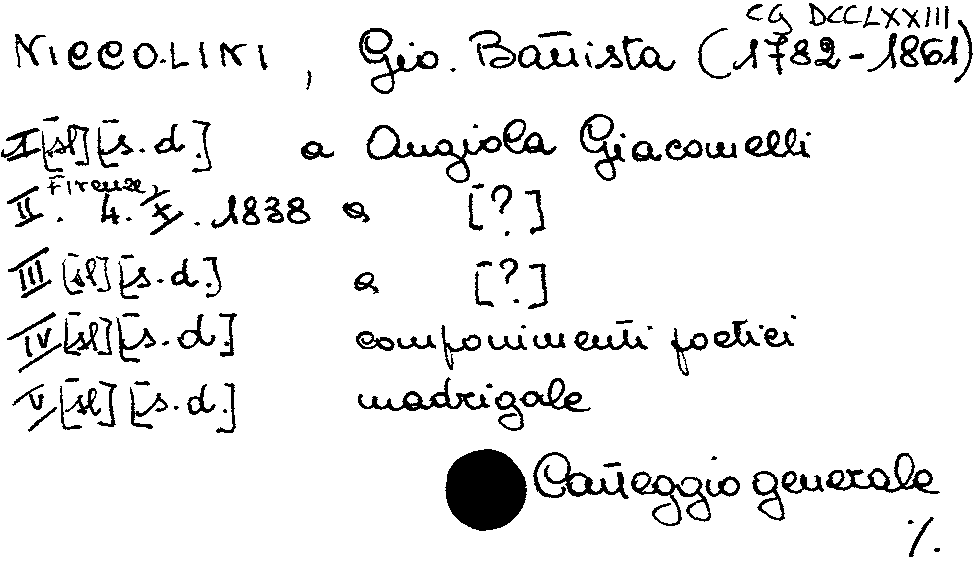 CG DCCLXXIII
NICCOLINI, Gio. Battista (1782-1861)
I [sl] [s.d.] a Angiola Giacomelli
Firenze,
II. 4. X. 1838 a [?]
III [sl] [s.d.] a [?]
IV [sl] [s.d.] componimenti poetici
V [sl] [s.d.] madrigale
Carteggio generale
./.